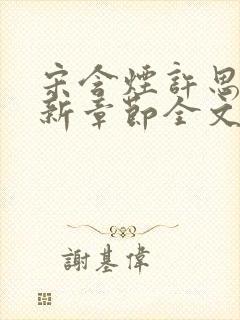 宋含煙許思
新章節全文
謝基偉